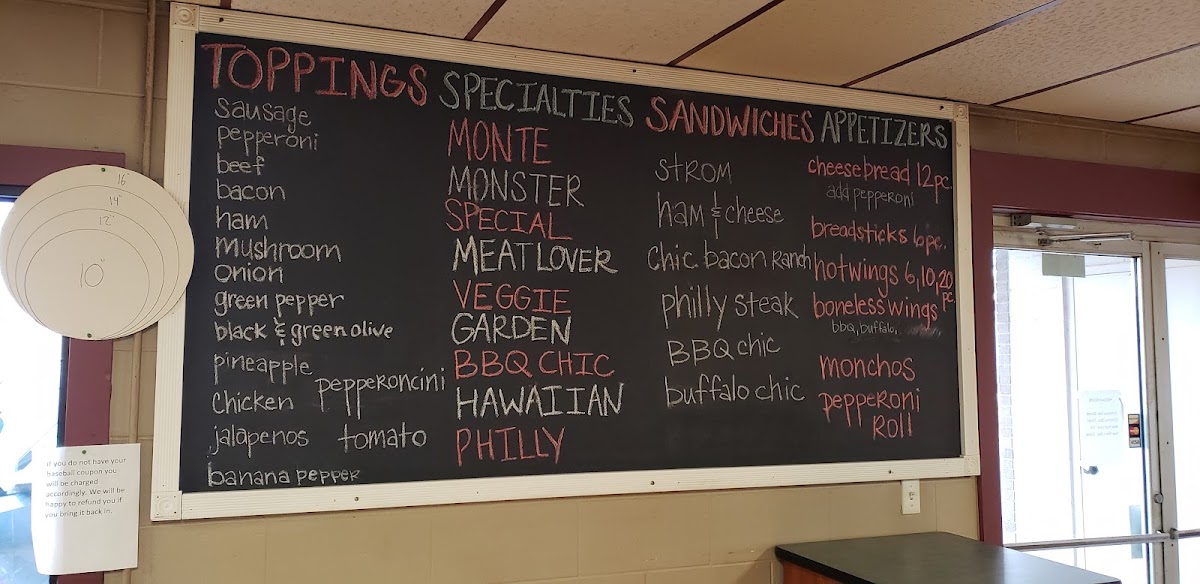 TOPPINGS
sausage
pepperoni
beef
bacon
ham
mushroom
onion
green pepper
black & green olive
pineapple
pepperoncini
chicken
jalapenos
tomato
banana pepper
SPECIALTIES
MONTE
MONSTER
SPECIAL
MEATLOVER
VEGGIE
GARDEN
BBQ CHIC
HAWAIIAN
PHILLY
SANDWICHES
STROM
ham & cheese
chic. bacon Ranch
philly steak
BBQ chic
buffalo chic
APPETIZERS
cheesebread 12pc.
add pepperoni
breadsticks 6pc.
hotwings 6,10,20
pc.
boneless wings
bbq, buffalo,
monchos
pepperoni
Roll
16"
14"
12"
10"
If you do not have your
baseball coupon you
will be charged
accordingly. We will be
happy to refund you if
you bring it back in.